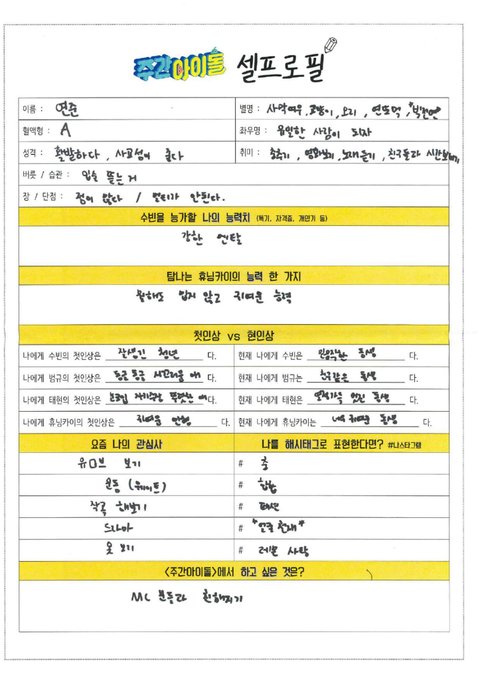 주간아이돌 셀프로필
이름 : 연준
별명 : 사막여우, 요리, 연또먹,
혈액형 : A
좌우명 : 유일한 사람이 되자
성격 : 활발하다, 사교성이 좋다
취미 : 춤추기, 영화보기, 노래듣기, 친구들과 시간보내기
버릇 / 습관 : 입술 뜯는 거
장 / 단점 : 정이 많다 / 멀티가 안된다.
수빈을 능가할 나의 능력치 (특기, 자격증, 개인기 등)
강한 멘탈
탐나는 휴닝카이의 능력 한 가지
뭘해도 밉지 않고 귀여운 능력
첫인상 vs 현인상
나에게 수빈의 첫인상은 잘생긴 청년 다.
현재 나에게 수빈은 동생 다.
나에게 범규의 첫인상은 다.
현재 나에게 범규는 친구같은 동생 다.
나에게 태현의 첫인상은 다.
현재 나에게 태현은 동생 다.
나에게 휴닝카이의 첫인상은 귀여운 인형 다.
현재 나에게 휴닝카이는 귀여운 동생 다.
요즘 나의 관심사
나를 해시태그로 표현한다면? #나스타그램
유튜브 보기
# 춤
운동 (웨이트)
# 힙합
작곡 해보기
# 패션
드라마
# "연습 천재"
옷 보기
# 레몬 사탕
<주간아이돌>에서 하고 싶은 것은?
MC 분들과 친해지기